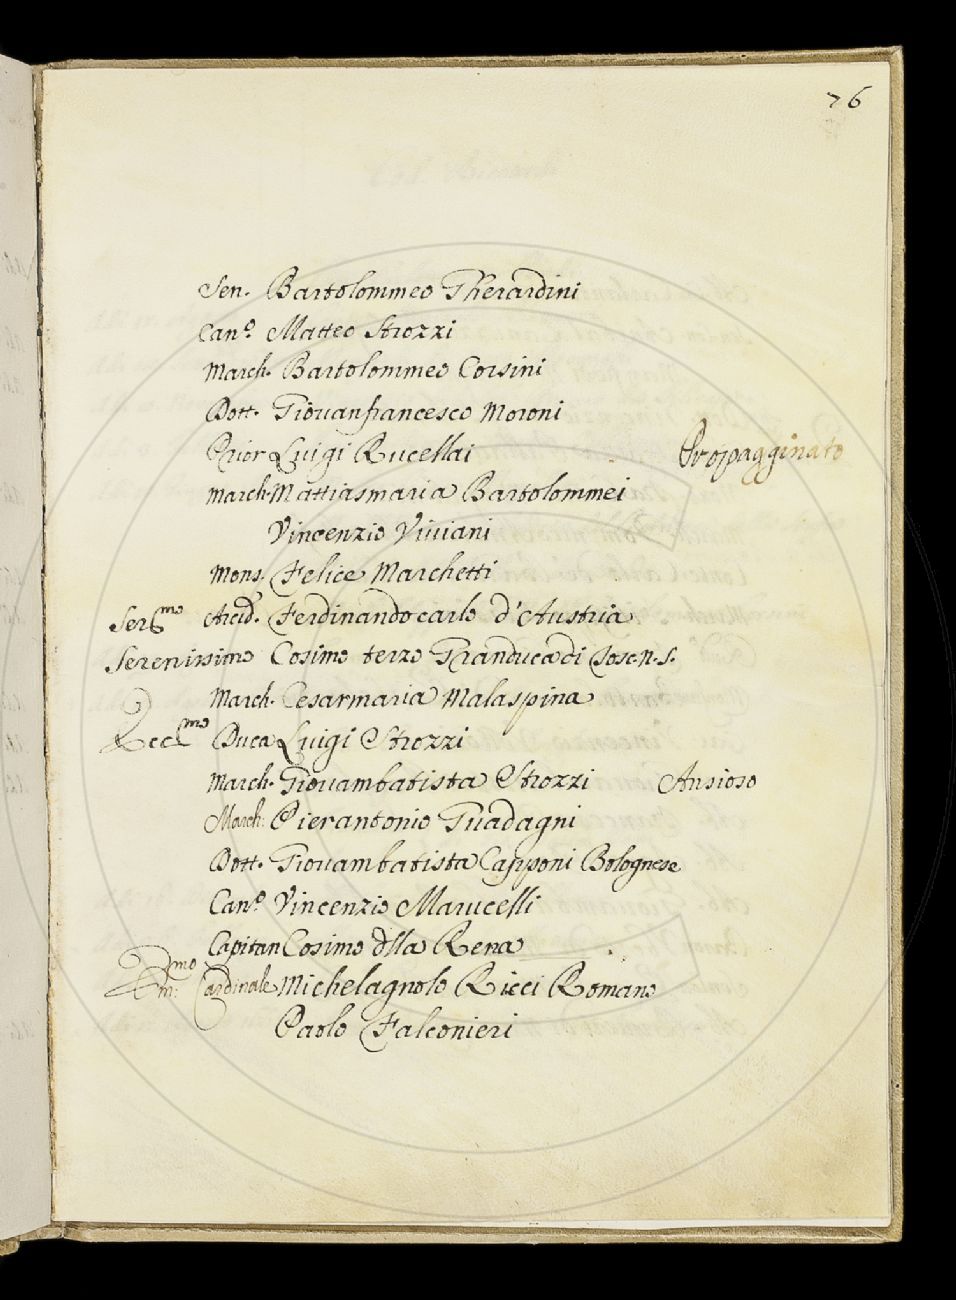 76
Sen. Bartolommeo Gherardini
Can.º Matteo Strozzi
March. Bartolommeo Corsini
Dott. Giovanfrancesco Moroni
Prior Luigi Rucellai Propagginato
March. Mattiasmaria Bartolommei
Vincenzio Viviani
Mons. Felice Marchetti
Ser.mo Arcid. Ferdinandocarlo d'Austria
Serenissimo Cosimo terzo Granduca di Tosc. N. S.
March. Cesarmaria Malaspina
Ecc.mo Duca Luigi Strozzi
March. Giovambatista Strozzi Ansioso
March: Pierantonio Guadagni
Dott. Giovambatista Capponi Bolognese
Can.º Vincenzio Marucelli
Capitan Cosimo dlla Rena
Em:mo Cardinale Michelagnolo Ricci Romano
Paolo Falconieri